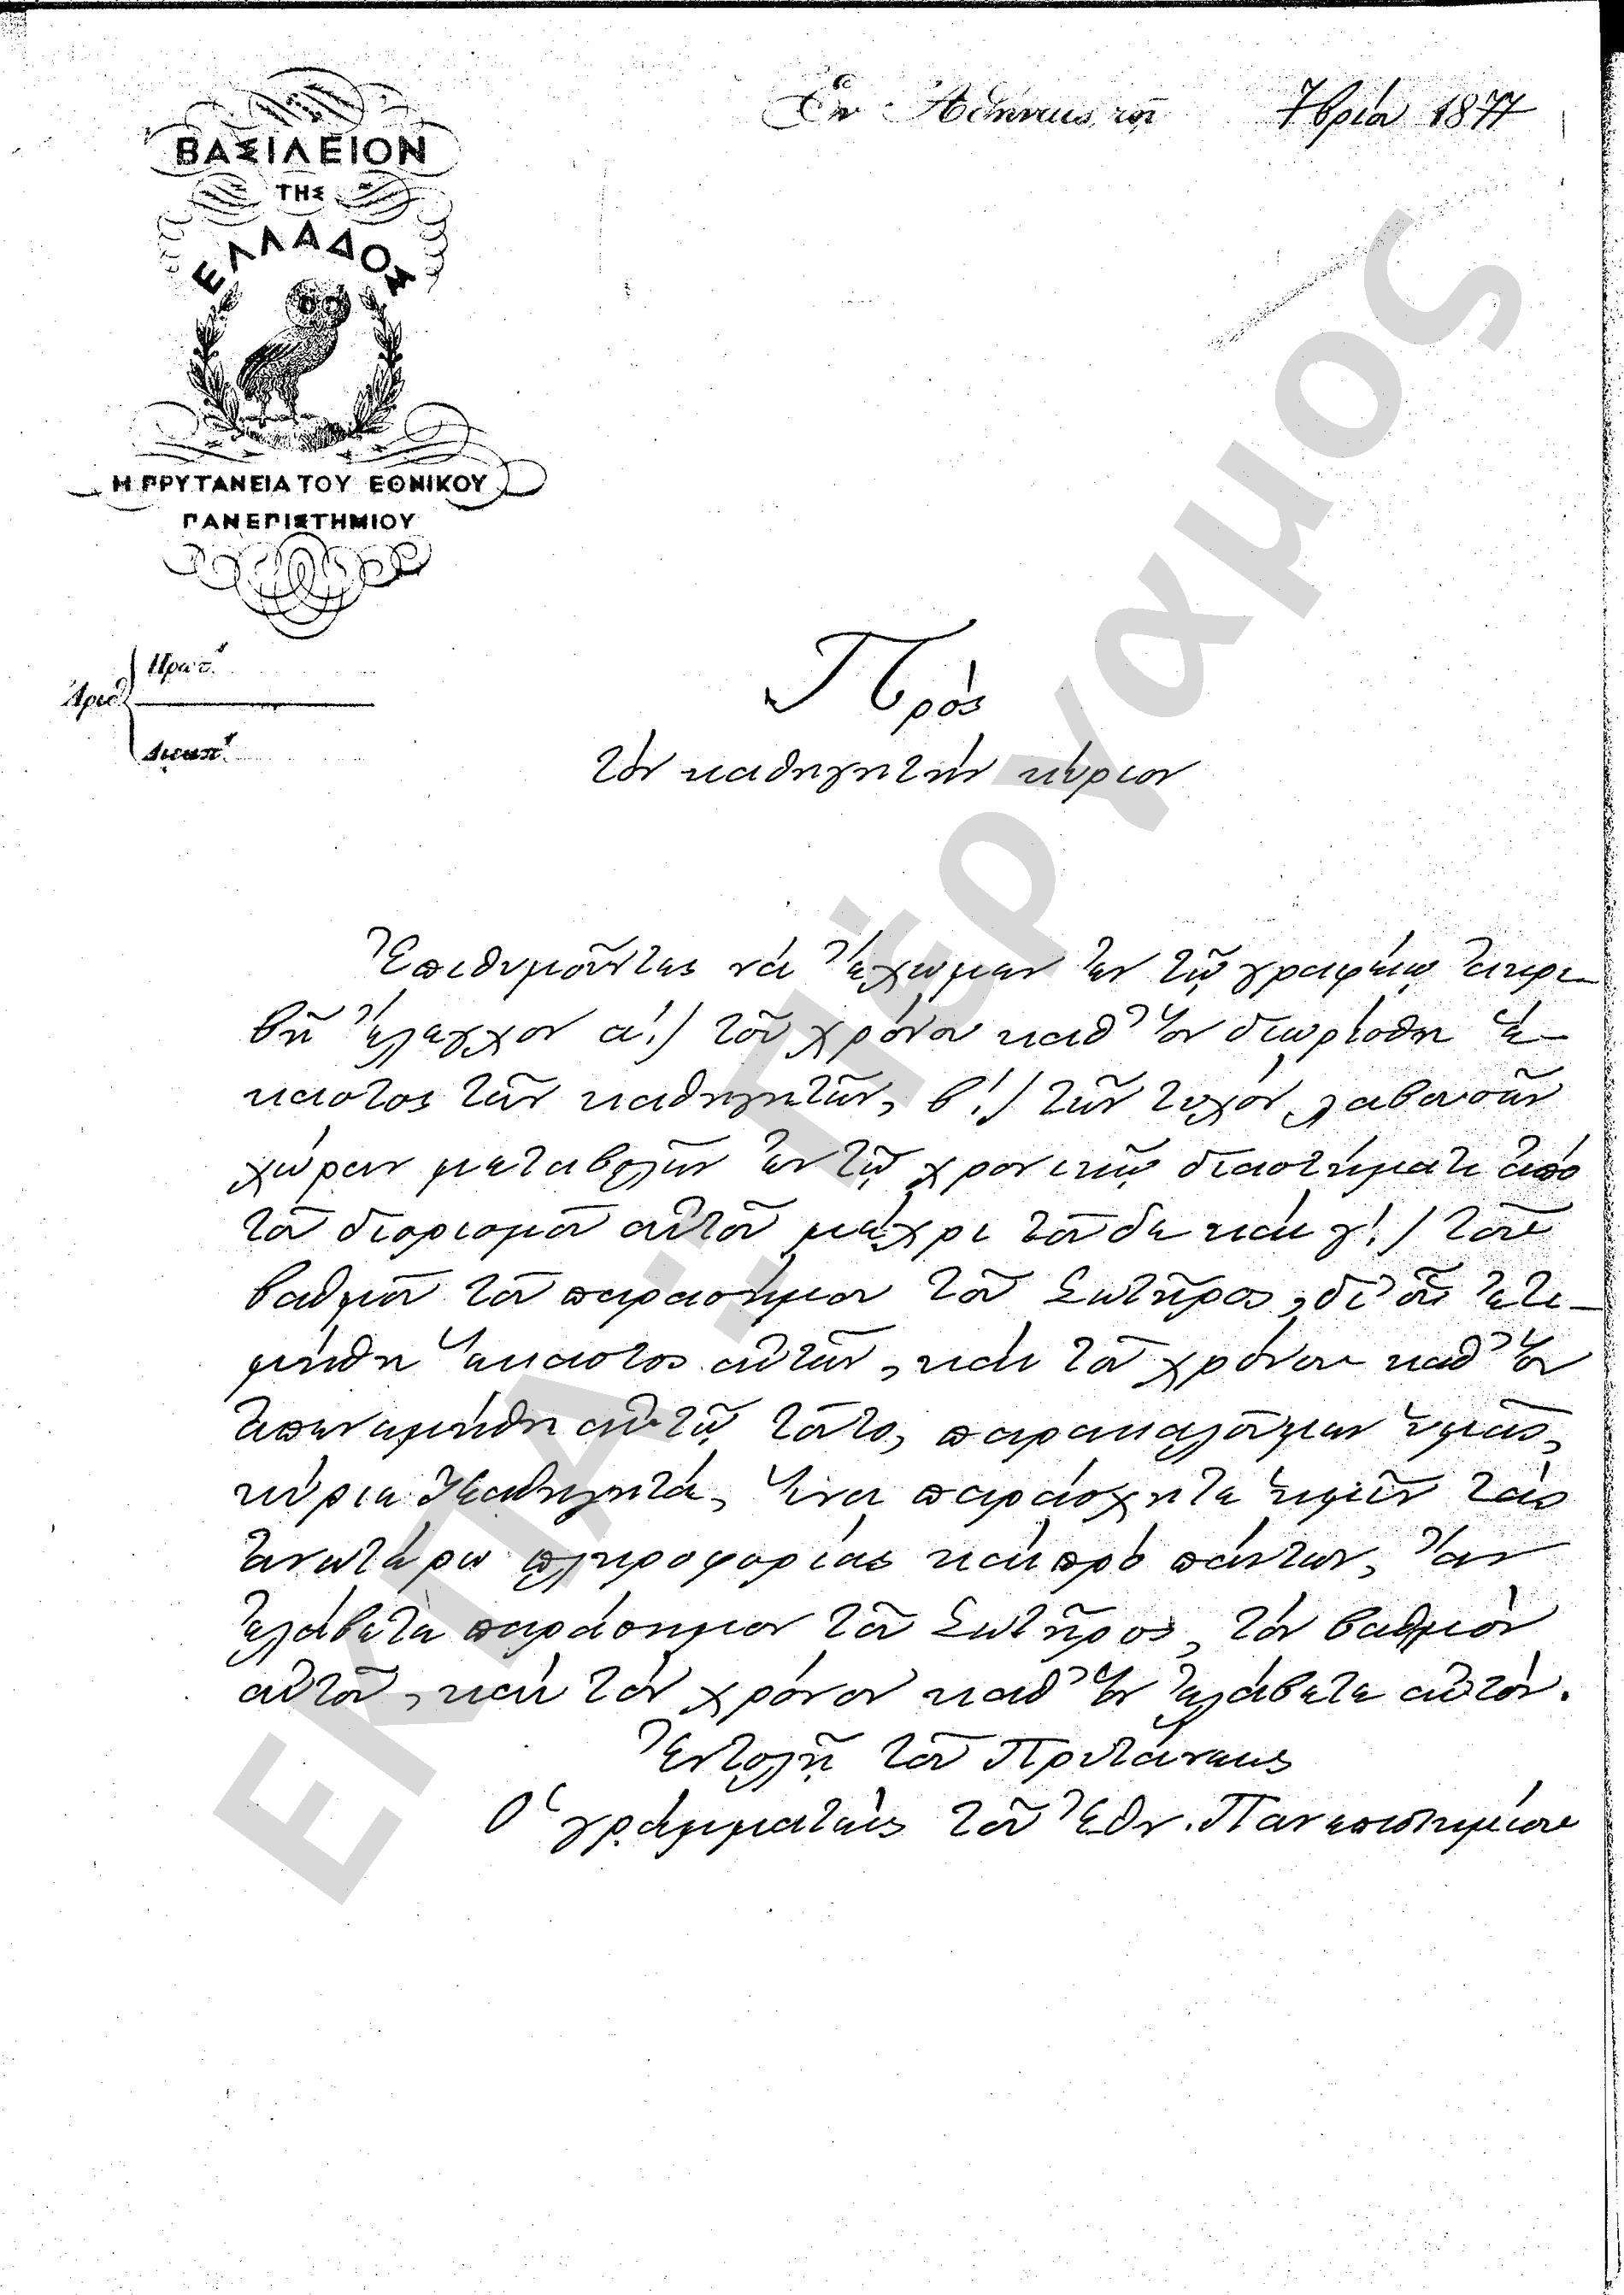 Ἐν Ἀθήναις τῇ 7βρίου 1877
ΒΑΣΙΛΕΙΟΝ
ΤΗΣ
ΕΛΛΑΔΟΣ
Η ΠΡΥΤΑΝΕΙΑ ΤΟΥ ΕΘΝΙΚΟΥ
ΠΑΝΕΠΙΣΤΗΜΙΟΥ
Πρωτ.
Ἀριθ.
Διεκπ.
Πρὸς
τὸν καθηγητὴν κύριον
Ἐπιθυμοῦντες νὰ ἔχωμεν ἐν τῷ γραφείῳ ἀκρι-
βῆ ἔλεγχον α΄.) τοῦ χρόνου καθ' ὃν διωρίσθη ἕ-
καστος τῶν καθηγητῶν, β΄.) τῶν τυχὸν λαβουσῶν
χώραν μεταβολῶν ἐν τῷ χρονικῷ διαστήματι ἀπὸ
τοῦ διορισμοῦ αὐτοῦ μέχρι τοῦδε καὶ γ΄.) τοῦ
βαθμοῦ τοῦ παρασήμου τοῦ Σωτῆρος, δι' οὗ ἐτι-
μήθη ἕκαστος αὐτῶν, καὶ τοῦ χρόνου καθ' ὃν
ἀπενεμήθη αὐτῷ τοῦτο, παρακαλοῦμεν ὑμᾶς,
κύριε Καθηγητά, ἵνα παράσχητε ἡμῖν τὰς
ἀνωτέρω πληροφορίας καὶ πρὸ πάντων, ἐὰν
ἐλάβετε παράσημον τοῦ Σωτῆρος, τὸν βαθμὸν
αὐτοῦ, καὶ τὸν χρόνον καθ' ὃν ἐλάβετε αὐτόν.
Ἐντολῇ τοῦ Πρυτάνεως
Ὁ γραμματεὺς τοῦ Ἐθν. Πανεπιστημίου
ΕΚΠΑ: Πέργαμος